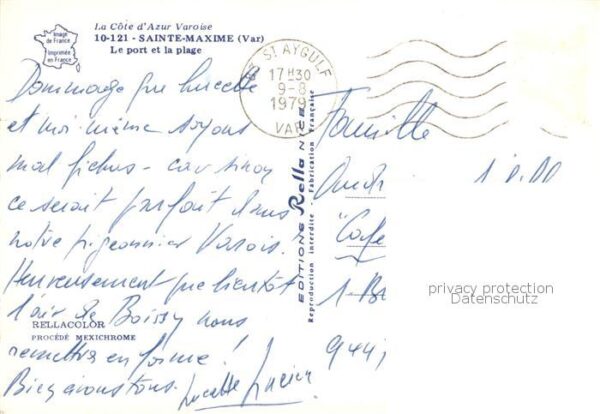 La Côte d'Azur Varoise
10-121 - SAINTE-MAXIME (Var)
Le port et la plage
Image de France
Imprimée en France
ST AYGULF
17H30
9-8
1979
VAR
Dommage que Lucette
et moi même soyons
mal fichus - car sinon
ce serait parfait dans
notre pigeonnier Varois.
Heureusement que bientôt
l'air de Boissy nous
remettra en forme !
Bien à vous tous. Lucette Lucien
RELLACOLOR
PROCÉDÉ MEXICHROME
EDITIONS Rella NICE
Reproduction interdite - Fabrication Française
Famille
"Cafe
1-
944
privacy protection
Datenschutz